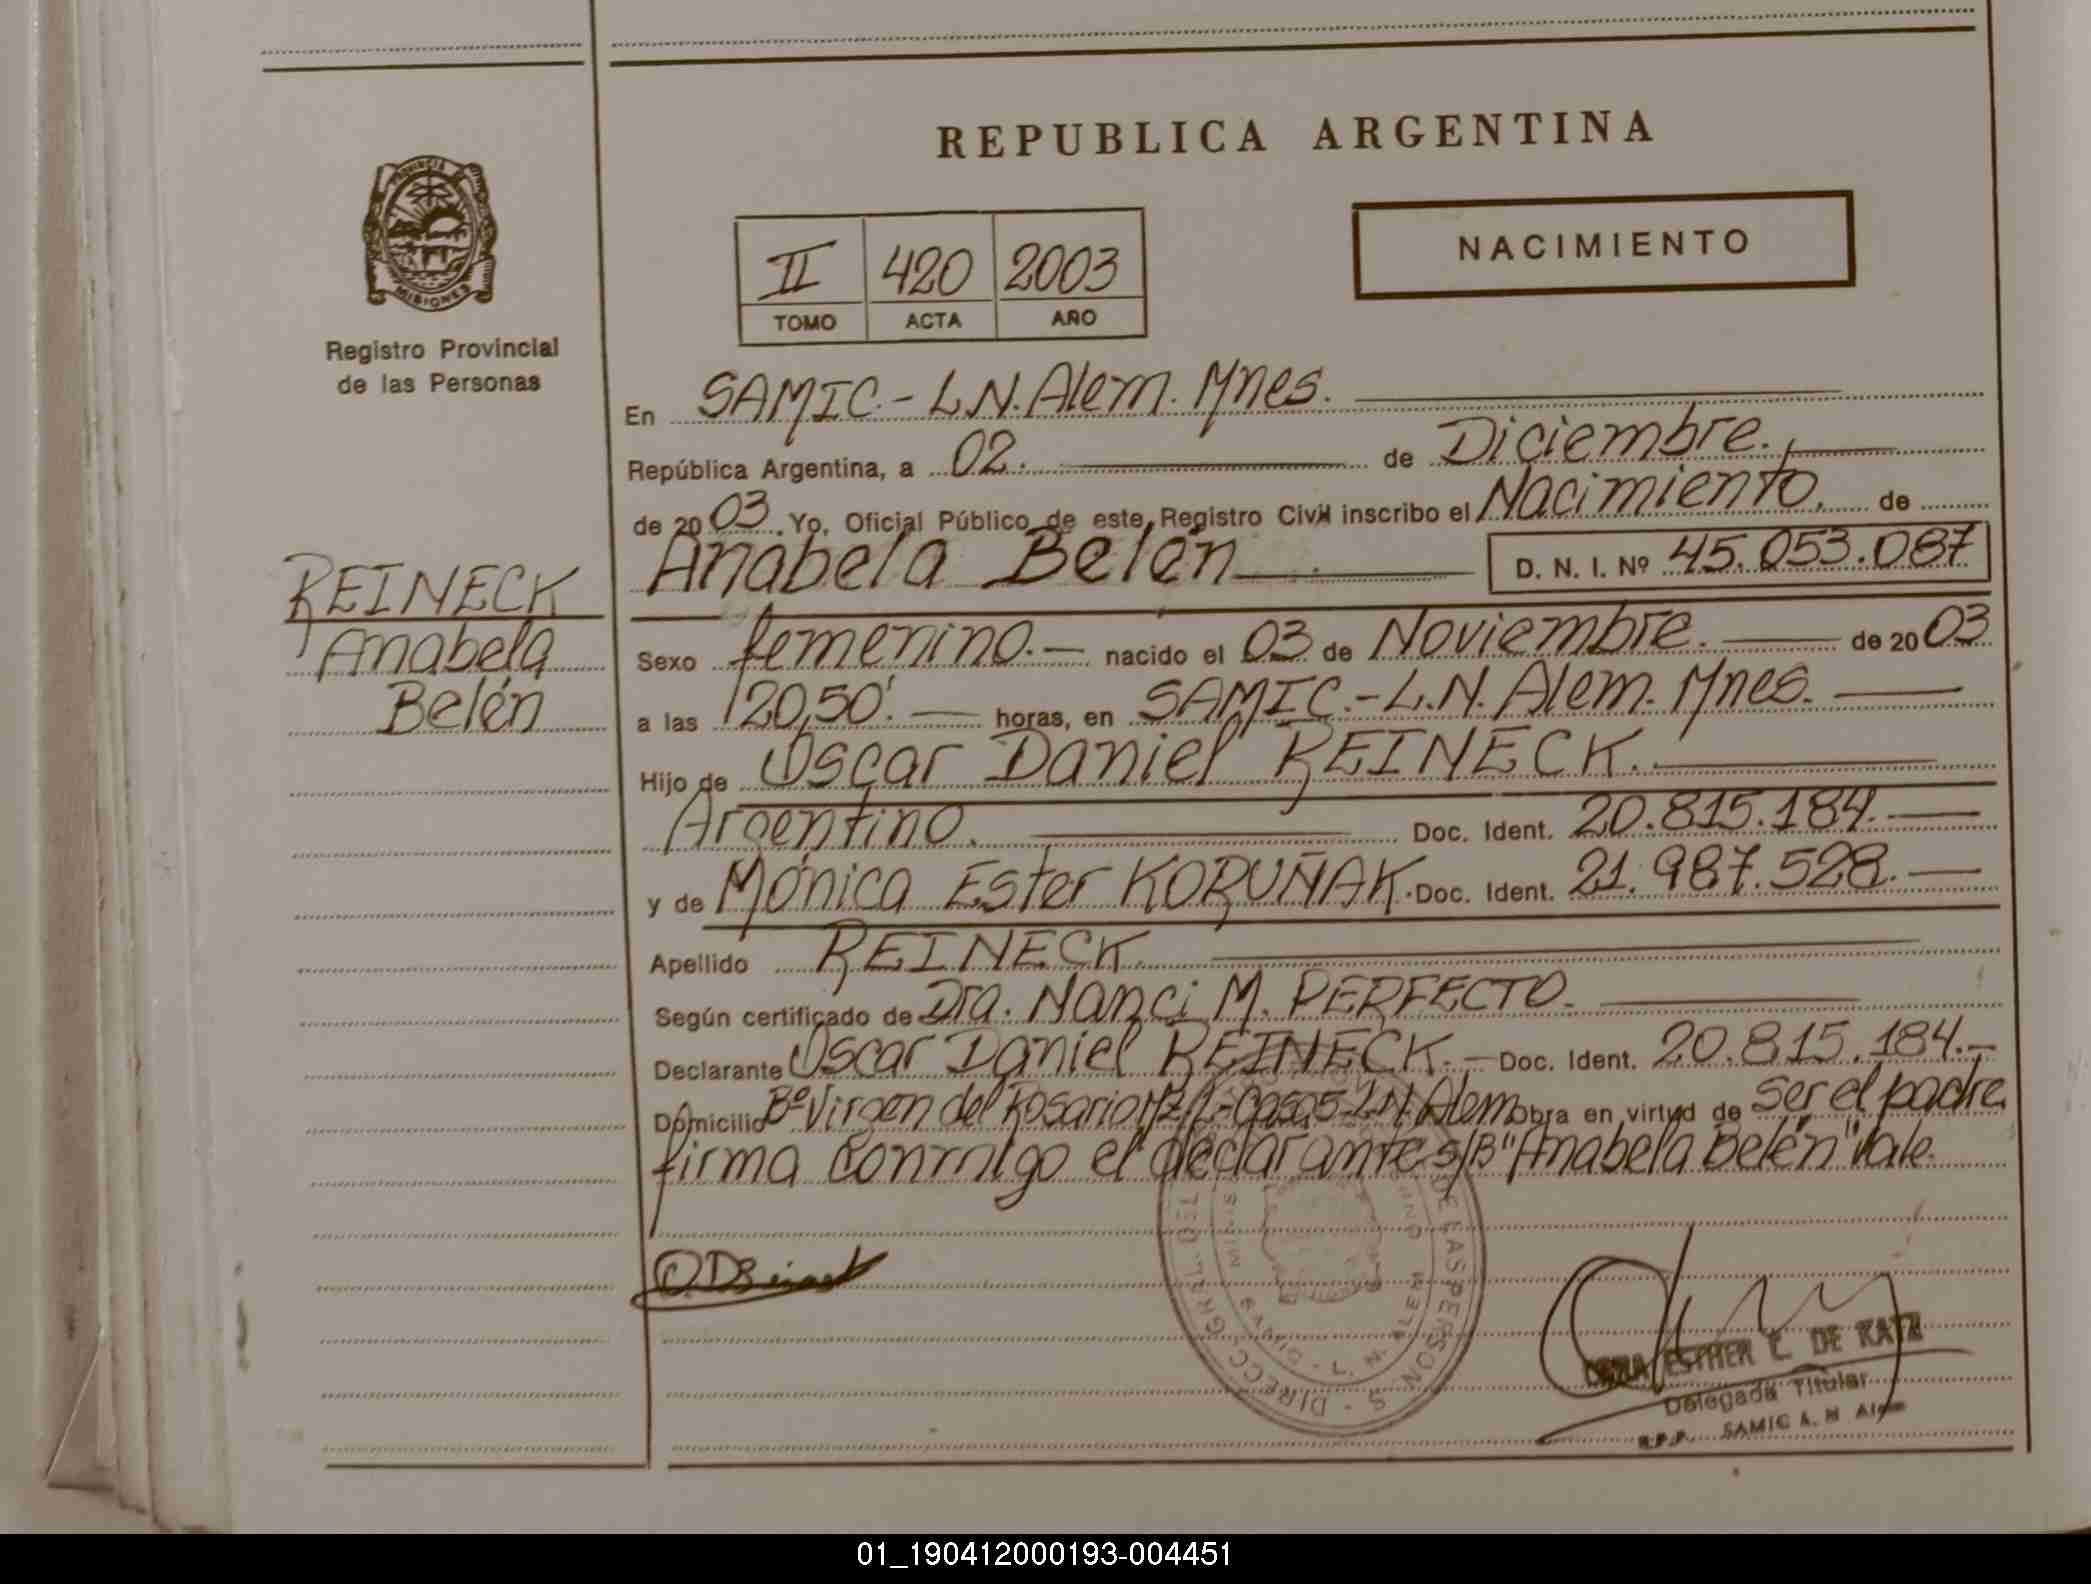 REPUBLICA ARGENTINA
PROVINCIA
MISIONES
Registro Provincial
de las Personas
II 420 2003
TOMO ACTA AÑO
NACIMIENTO
En SAMIC.- L.N. Alem. Mnes.
República Argentina, a 02. de Diciembre.
de 2003. Yo, Oficial Público de este Registro Civil inscribo el Nacimiento. de
Anabela Belén D. N. I. Nº 45.053.087
REINECK
Anabela
Belén
Sexo femenino.- nacido el 03 de Noviembre. de 2003
a las 20,50'. horas, en SAMIC.-L.N. Alem. Mnes.
Hijo de Oscar Daniel REINECK.
Argentino. Doc. Ident. 20.815.184.
y de Mónica Ester KORUÑAK. Doc. Ident. 21.987.528.
Apellido REINECK.
Según certificado de Dra. Nanci M. PERFECTO.
Declarante Oscar Daniel REINECK.- Doc. Ident. 20.815.184.-
Domicilio Bº Virgen del Rosario Casa 5-L.N. Alem Obra en virtud de ser el padre
firma conmigo el declarante s/B "Anabela Belén" Vale.
DE LAS PERSONAS
DIRECC GRAL. DEL
L. N. ALEM
ESTHER DE KATZ
Delegada Titular
R.P.P. SAMIC L. N Alem
01_190412000193-004451